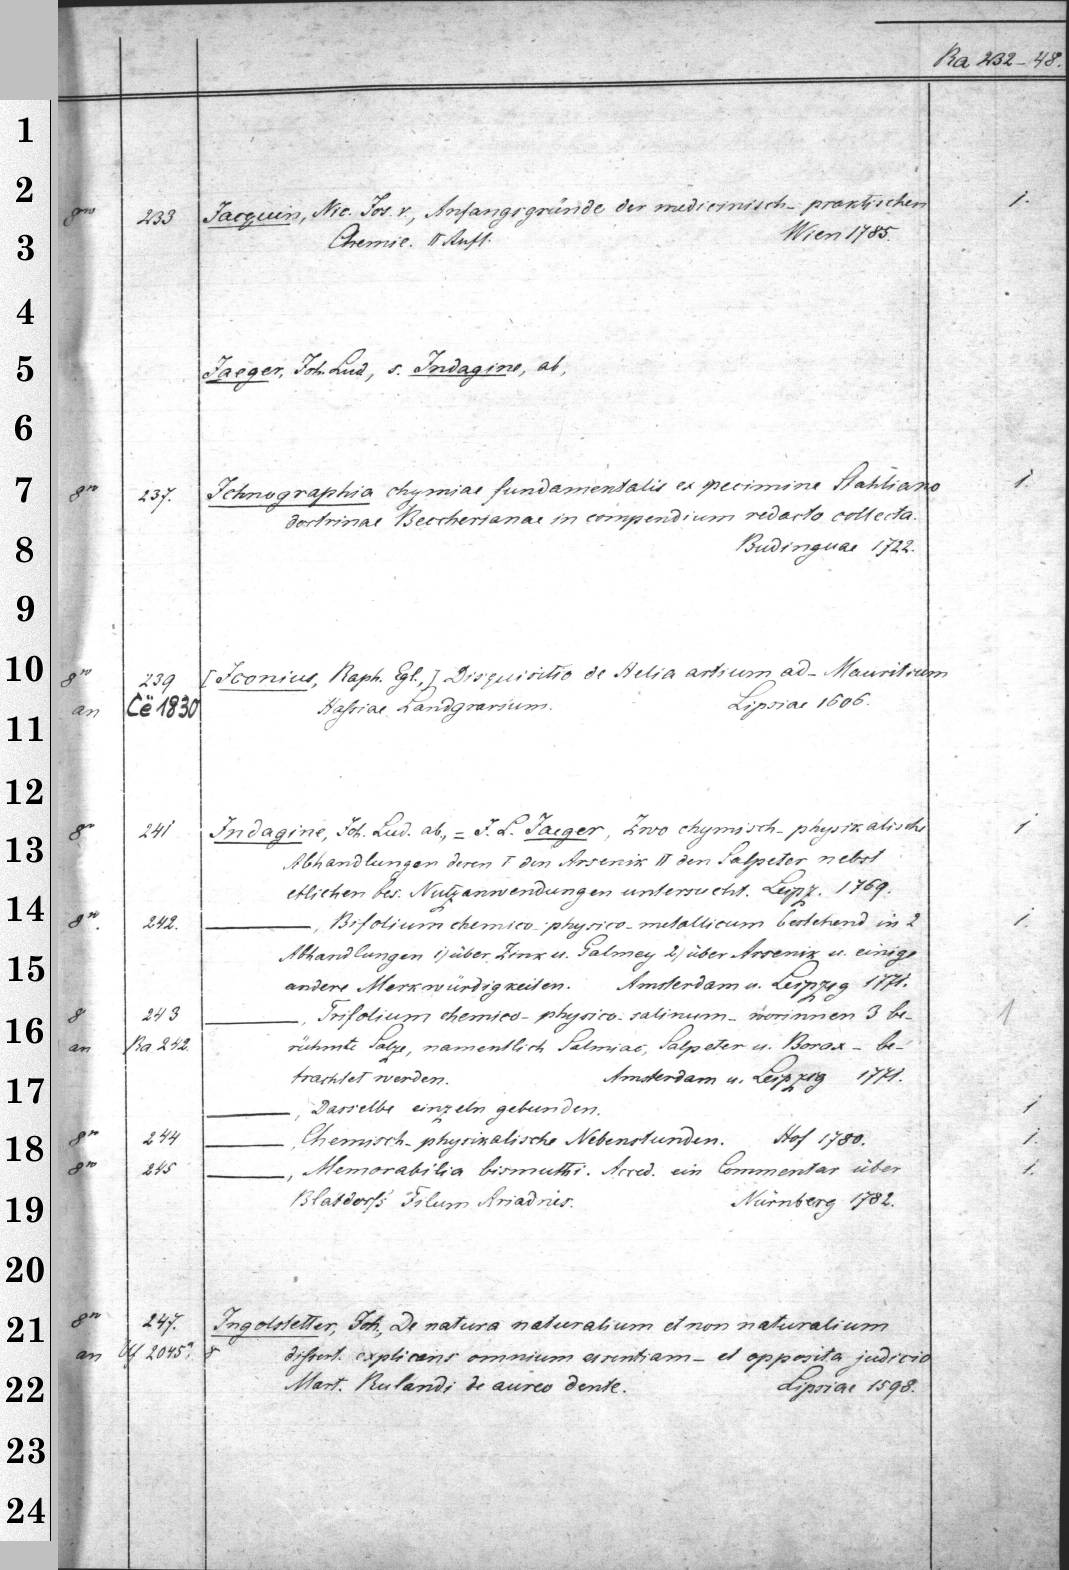 Ra 232-48.
1
2
8vo 233 Jacquin, Nic. Jos. v., Anfangsgründe der medicinisch-praktischen 1.
3
Chemie. II Aufl. Wien 1785.
4
5
Jaeger, Joh. Lud., s. Indagine, ab,
6
7
8vo 237. Ichnographia chymiae fundamentalis ex specimine Stahliano 1.
doctrinae Beccherianae in compendium redacto collecta.
8
Budinguae 1722.
9
10
8vo 239 [Iconius, Raph. Egl.,] Disquisitio de Helia artium ad- Mauritium
an Cë 1830 Haßiae Landgravium. Lipsiae 1606.
11
12
8vo 241 Indagine, Joh. Lud. ab, = J. L. Jaeger, Zwo chymisch-physikalische 1
13
Abhandlungen deren I den Arsenik II den Salpeter nebst
etlichen bes. Nutzanwendungen untersucht. Leipz. 1769.
14
8vo. 242. ———, Bifolium chemico-physico-metallicum bestehend in 2 1.
Abhandlungen 1) über Zink u. Galmey 2) über Arsenik u. einige
15
andere Merkwürdigkeiten. Amsterdam u. Leipzig 1771.
8 243 ———, Trifolium chemico-physico-salinum- worinnen 3 be- 1
16
an Ra 242. rühmte Salze, namentlich Salmiac, Salpeter u. Borax- be-
17
trachtet werden. Amsterdam u. Leipzig 1771.
———, Dasselbe einzeln gebunden. 1
18
8vo 244 ———, Chemisch-physikalische Nebenstunden. Hof 1780. 1.
8vo 245 ———, Memorabilia bismuthi. Acced. ein Commentar über 1.
19
Filum Ariadnes. Nürnberg 1782.
20
21
8vo 247. Ingolstetter, Joh., De natura naturalium et non naturalium
an 2045 8 dissert. explicans omnium essentiam- et opposita judicio
22
Mart. Rulandi de aureo dente. Lipsiae 1598.
23
24